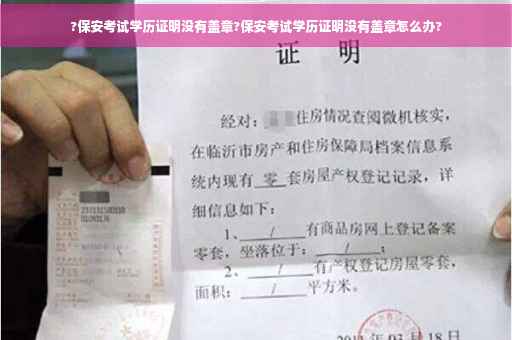 ?保安考试学历证明没有盖章?保安考试学历证明没有盖章怎么办?
证 明
经对：住房情况查阅微机核实，
在临沂市房产和住房保障局档案信息系
统内现有 零 套房屋产权登记记录，详
细信息如下：
1、 / 有商品房网上登记备案
零套，坐落位于： / ；
2、 / 有产权登记房屋零套，
面积： / 平方米。
03月18日